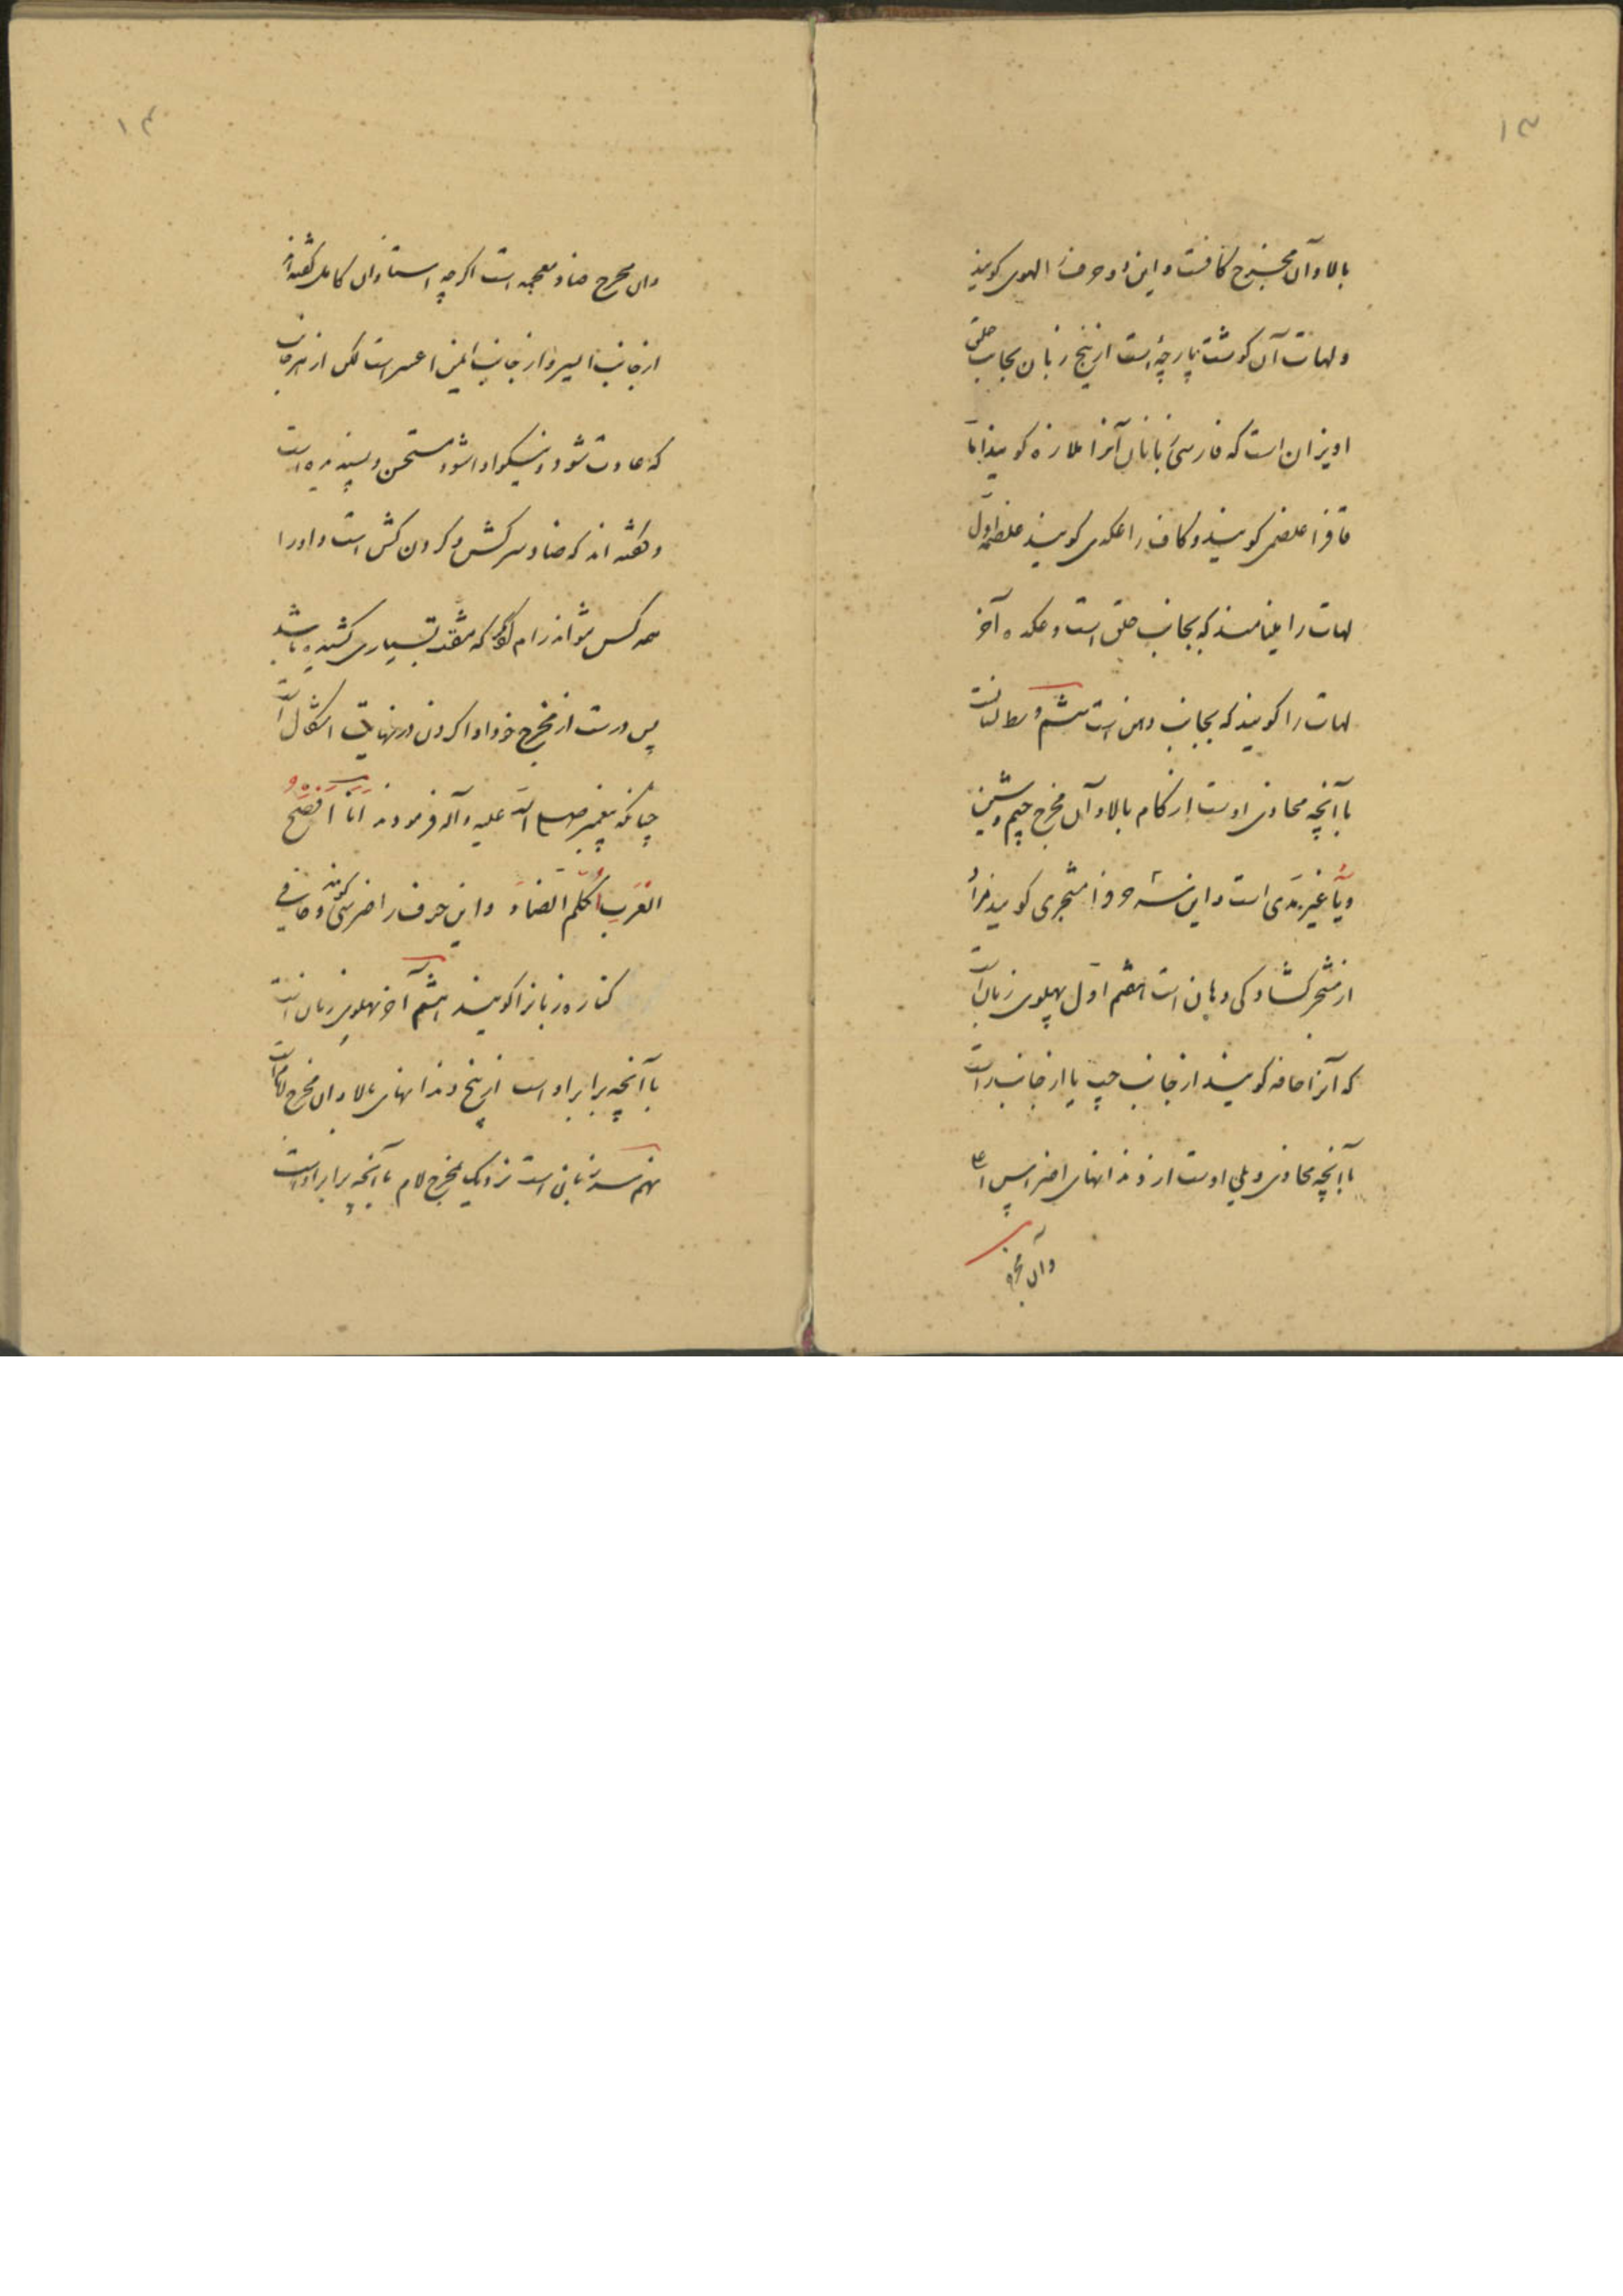 ۱۳
بالا و آن مخرج کافست و این دو حرف را لهوی کویند
و لهات آن کوشت پارچهٔ است از بیخ زبان بجانب حلق
اویزان است که فارسی زبانان آنرا ملازه کویند اما
قافرا غلصمی کویند و کاف را عکدی کویند غلصمه اول
لهات را مینامند که بجانب حلق است و عکده آخر
لهات را کویند که بجانب دهن است ششم وسط لسانست
با آنچه محاذی اوست از کام بالا و آن مخرج جیم و شین
و یاء غیر مدی است و این سه حرفرا شجری کویند زیرا
از شجر کشادکی دهان است هفتم اول پهلوی زبان است
که آنرا حافه کویند از جانب چپ یا از جانب راست
با آنچه محاذی و یلی اوست از دندانهای اضراس
وآن مخرج
۱۴
وآن مخرج ضاد معجمه است اکرچه استادان کامل کفته‌اند
از جانب ایسر و از جانب ایمن اعسر است لکن از هر جانب
که عادت شود و نیکو ادا شود مستحسن و پسندیده است
و کفته اند که ضاد سرکش و کردن کش است و اورا
همه کس نتواند رام کند مکر که مشقت بسیاری کشیده باشد
پس درست از مخرج خود ادا کردن در نهایت اشکال است
چنانکه پیغمبر صلی الله علیه وآله فرمودند انا افصح
العرب اتکلم الضاد و این حرف را ضرسی کویند و حافی
کناره زبانرا کویند هشتم آخر پهلوی زبان است
با آنچه برابر اوست از بیخ دندانهای بالا و آن مخرج لام است
نهم سر زبان است نزدیک مخرج لام با آنچه برابر اوست